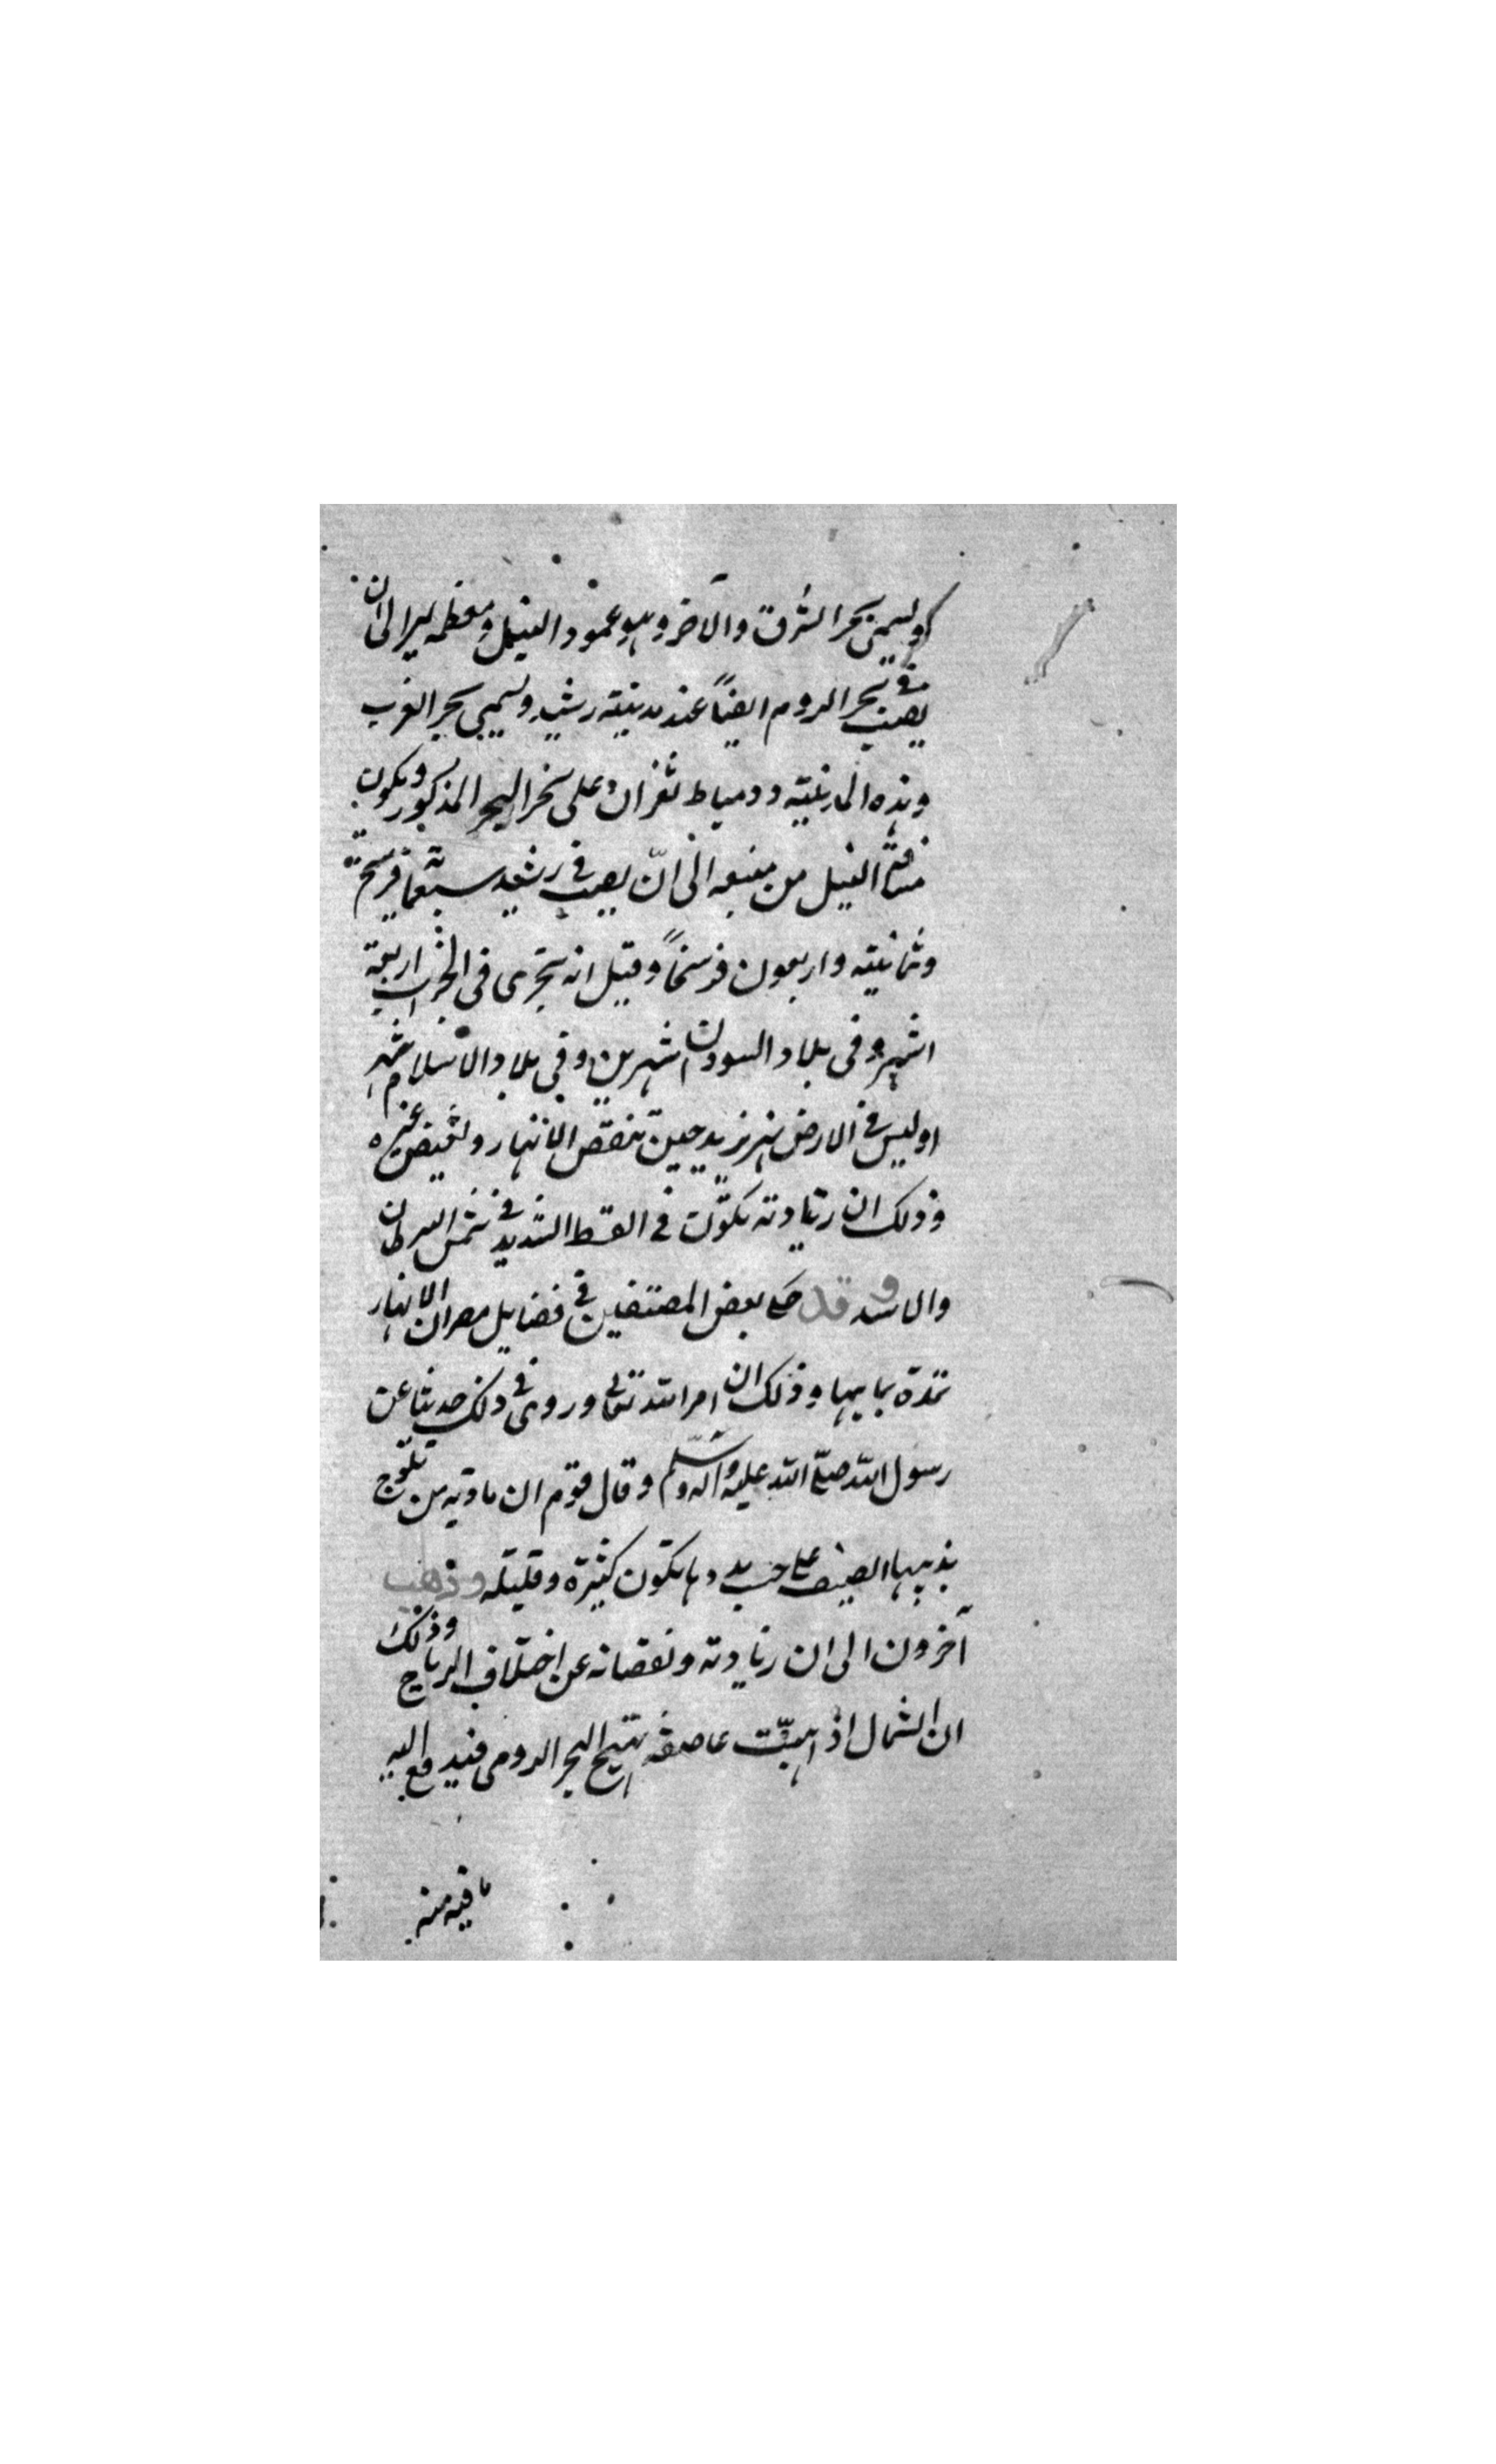 ويسمى بحر الشرق والآخر وهو عمود النيل ومعظمه يمر الى ان
يصب في بحر الروم ايضاً عند مدينته رشيد ويسمى بحر الغرب
وهذه المدينته ودمياط ثغران على بحر البحر المذكور ويكون
مسافة النيل من منبعه الى ان يصب في رشيد سبعمائة فرسخ
وثمانيته واربعون فرسخاً وقيل انه يجرى فى الخراب اربعة
اشهر وفى بلاد السودان شهرين وفى بلاد الاسلام شهر
اوليس في الارض نهر يزيد حين تنقص الانهار ويفيض غيره
وذلك ان زيادته تكون في القيظ الشديد في شمس السرطان
والاسد وقد حكى بعض المصنفين في فضايل مصر ان الانهار
تمدة بمايها وذلك ان امر الله تعالى وروى في ذلك حديثا عن
رسول الله صلى الله عليه وآله وسلم وقال قوم ان مادته من ثلوج
يذيبها الصيف على حسب مددها يكون كثيرة وقليله وذهب
آخرون الى ان زيادته ونقصانه عن اختلاف الرياح وذلك
ان الشمال اذا هبت عاصفه يهيج البحر الرومى فيدفع اليه
ما فيه منه